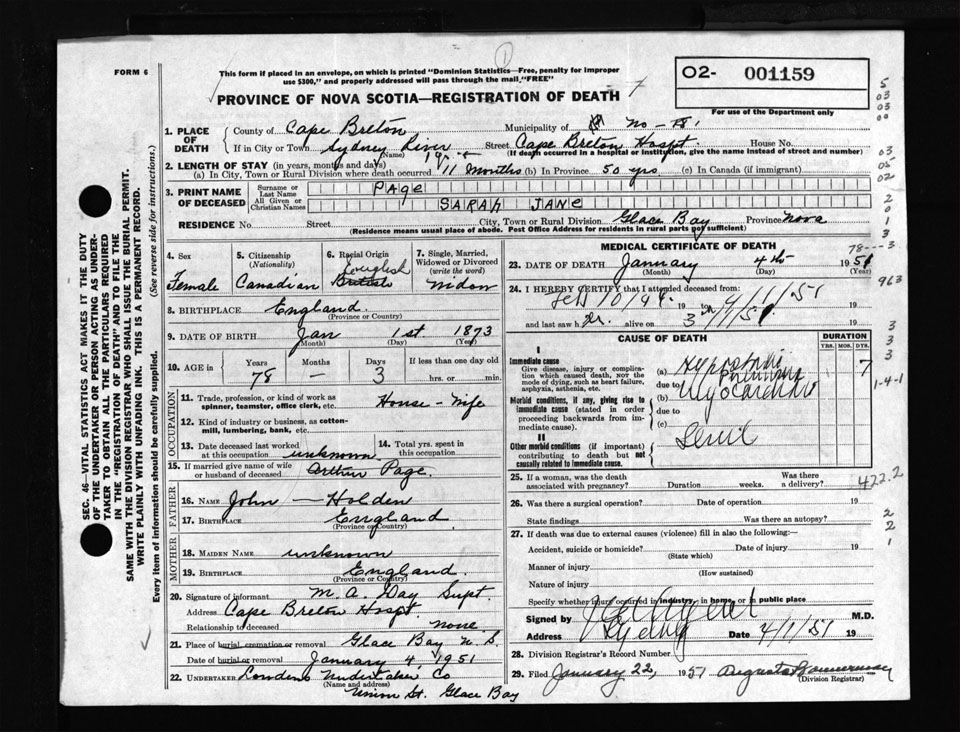 1
FORM 6
This form if placed in an envelope, on which is printed "Dominion Statistics—Free, penalty for improper
use $300," and properly addressed will pass through the mail, "FREE"
PROVINCE OF NOVA SCOTIA—REGISTRATION OF DEATH
O2- 001159
For use of the Department only
1. PLACE OF DEATH { County of Cape Breton Municipality of No - 18
If in City or Town Sydney River Street Cape Breton Hospt. House No.
(Name) (If death occurred in a hospital or institution, give the name instead of street and number)
2. LENGTH OF STAY (in years, months and days)
(a) In City, Town or Rural Division where death occurred 11 months (b) In Province 50 yrs (c) In Canada (if immigrant)
3. PRINT NAME OF DECEASED { Surname or Last Name PAGE
All Given or Christian Names SARAH JANE
RESIDENCE No. Street City, Town or Rural Division Glace Bay Province Nova
(Residence means usual place of abode. Post Office Address for residents in rural parts not sufficient)
4. Sex Female
5. Citizenship (Nationality) Canadian
6. Racial Origin English British
7. Single, Married, Widowed or Divorced (write the word) Widow
8. BIRTHPLACE England
(Province or Country)
9. DATE OF BIRTH Jan 1st 1873
(Month) (Day) (Year)
10. AGE in { Years 78 Months — Days 3 If less than one day old hrs. or min.
OCCUPATION
11. Trade, profession, or kind of work as spinner, teamster, office clerk, etc. House-Wife
12. Kind of industry or business, as cotton-mill, lumbering, bank, etc.
13. Date deceased last worked at this occupation unknown
14. Total yrs. spent in this occupation
15. If married give name of wife or husband of deceased Arthur Page.
FATHER
16. NAME John Holden
17. BIRTHPLACE England
(Province or Country)
MOTHER
18. MAIDEN NAME unknown
19. BIRTHPLACE England
(Province or Country)
20. Signature of informant M. A. Day Supt.
Address Cape Breton Hospt.
Relationship to deceased none
21. Place of burial, cremation or removal Glace Bay N. S.
Date of burial or removal January 4, 1951
22. UNDERTAKER Undertaker Co
Union St. Glace Bay
MEDICAL CERTIFICATE OF DEATH
78---3
23. DATE OF DEATH January 4th 1951
(Month) (Day) (Year)
24. I HEREBY CERTIFY that I attended deceased from:
19 to 4/1/51 19
and last saw h alive on 3 /1/51 19
CAUSE OF DEATH
DURATION
YRS. MOS. DYS.
I
Immediate cause
Give disease, injury or complication which caused death, not the mode of dying, such as heart failure, asphyxia, asthenia, etc.
(a) Hypostatic Pneumonia 7
due to
Morbid conditions, if any, giving rise to immediate cause (stated in order proceeding backwards from immediate cause).
(b) Myocarditis
due to
(c)
II
Other morbid conditions (if important) contributing to death but not causally related to immediate cause.
25. If a woman, was the death associated with pregnancy? Duration weeks. Was there a delivery?
26. Was there a surgical operation? Date of operation 19
State findings Was there an autopsy?
27. If death was due to external causes (violence) fill in also the following:—
Accident, suicide or homicide? Date of injury 19
(State which)
Manner of injury
(How sustained)
Nature of injury
Specify whether injury occurred in industry, in home, or in public place
Signed by M.D.
Address Sydney Date 4/1/51 19
28. Division Registrar's Record Number
29. Filed January 22, 1951 Augusta
(Division Registrar)
SEC. 46—VITAL STATISTICS ACT MAKES IT THE DUTY
OF THE UNDERTAKER OR PERSON ACTING AS UNDER-
TAKER TO OBTAIN ALL THE PARTICULARS REQUIRED
IN THE "REGISTRATION OF DEATH" AND TO FILE THE
SAME WITH THE DIVISION REGISTRAR WHO SHALL ISSUE THE BURIAL PERMIT.
WRITE PLAINLY WITH UNFADING INK. THIS IS A PERMANENT RECORD.
Every item of information should be carefully supplied. (See reverse side for instructions.)
5
03
03
00
03
05
02
2
0
1
3
3
963
3
3
3
1-4-1
422.2
2
2
1